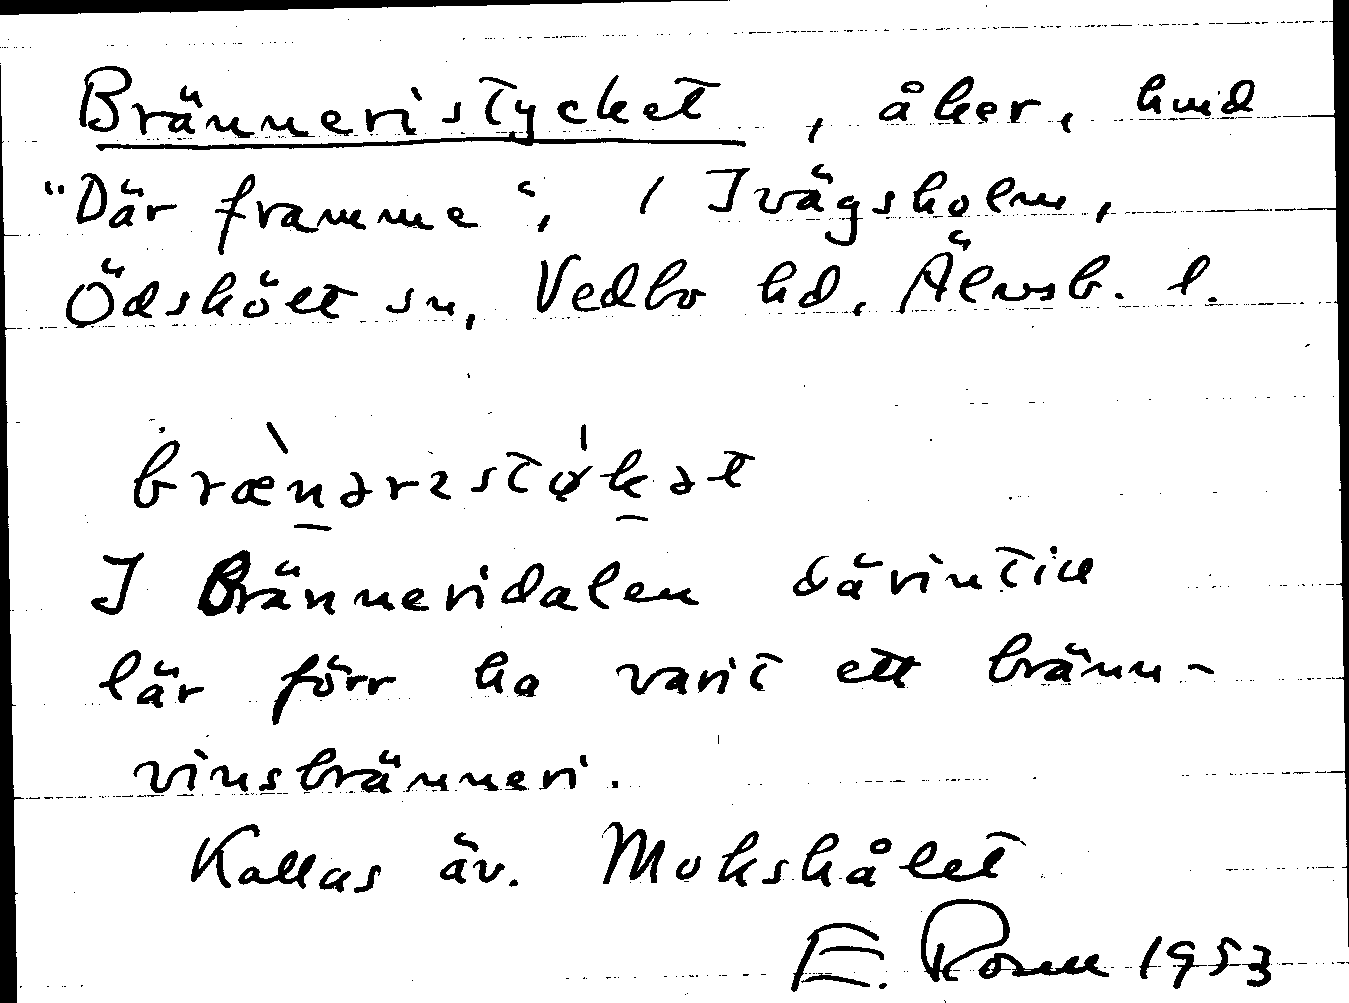 Bränneristycket, åker, hmd
"Där framme", / Ivägsholm,
Ödskölt sn, Vedbo hd, Älvsb. l.
I Bränneridalen därintill
lär förr ha varit ett bränn-
vinsbränneri.
Kallas äv. Mokshålet
E. Rosell 1953